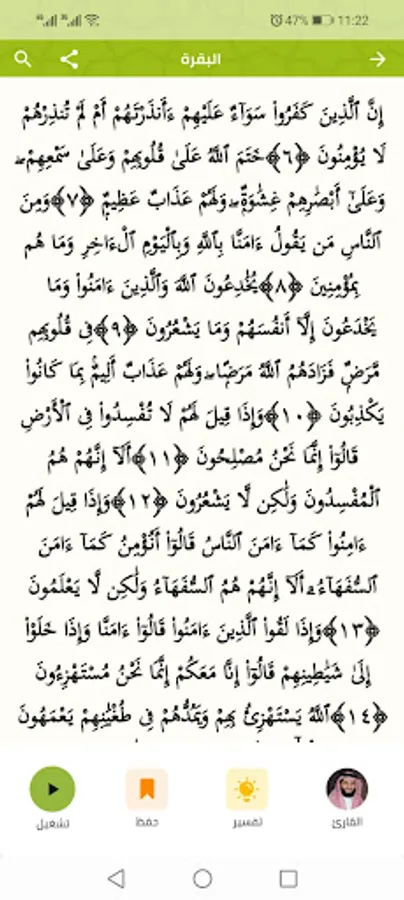 47% 11:22
البقرة
إِنَّ ٱلَّذِينَ كَفَرُوا۟ سَوَآءٌ عَلَيْهِمْ ءَأَنذَرْتَهُمْ أَمْ لَمْ تُنذِرْهُمْ
لَا يُؤْمِنُونَ ﴿٦﴾خَتَمَ ٱللَّهُ عَلَىٰ قُلُوبِهِمْ وَعَلَىٰ سَمْعِهِمْ ۖ
وَعَلَىٰٓ أَبْصَٰرِهِمْ غِشَٰوَةٌ ۖ وَلَهُمْ عَذَابٌ عَظِيمٌ ﴿٧﴾وَمِنَ
ٱلنَّاسِ مَن يَقُولُ ءَامَنَّا بِٱللَّهِ وَبِٱلْيَوْمِ ٱلْءَاخِرِ وَمَا هُم
بِمُؤْمِنِينَ ﴿٨﴾يُخَٰدِعُونَ ٱللَّهَ وَٱلَّذِينَ ءَامَنُوا۟ وَمَا
يَخْدَعُونَ إِلَّآ أَنفُسَهُمْ وَمَا يَشْعُرُونَ ﴿٩﴾فِى قُلُوبِهِم
مَّرَضٌ فَزَادَهُمُ ٱللَّهُ مَرَضًا ۖ وَلَهُمْ عَذَابٌ أَلِيمٌۢ بِمَا كَانُوا۟
يَكْذِبُونَ ﴿١٠﴾وَإِذَا قِيلَ لَهُمْ لَا تُفْسِدُوا۟ فِى ٱلْأَرْضِ
قَالُوٓا۟ إِنَّمَا نَحْنُ مُصْلِحُونَ ﴿١١﴾أَلَآ إِنَّهُمْ هُمُ
ٱلْمُفْسِدُونَ وَلَٰكِن لَّا يَشْعُرُونَ ﴿١٢﴾وَإِذَا قِيلَ لَهُمْ
ءَامِنُوا۟ كَمَآ ءَامَنَ ٱلنَّاسُ قَالُوٓا۟ أَنُؤْمِنُ كَمَآ ءَامَنَ
ٱلسُّفَهَآءُ ۗ أَلَآ إِنَّهُمْ هُمُ ٱلسُّفَهَآءُ وَلَٰكِن لَّا يَعْلَمُونَ
﴿١٣﴾وَإِذَا لَقُوا۟ ٱلَّذِينَ ءَامَنُوا۟ قَالُوٓا۟ ءَامَنَّا وَإِذَا خَلَوْا۟
إِلَىٰ شَيَٰطِينِهِمْ قَالُوٓا۟ إِنَّا مَعَكُمْ إِنَّمَا نَحْنُ مُسْتَهْزِءُونَ
﴿١٤﴾ٱللَّهُ يَسْتَهْزِئُ بِهِمْ وَيَمُدُّهُمْ فِى طُغْيَٰنِهِمْ يَعْمَهُونَ
القارئ
تفسير
حفظ
تشغيل